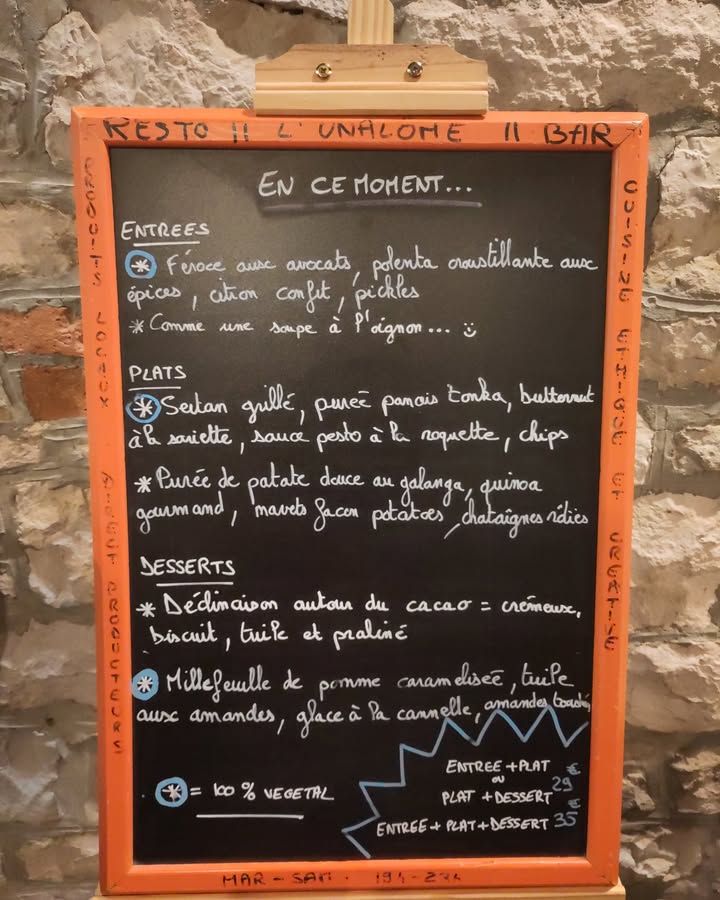 RESTO || L'UNALOME || BAR
PRODUITS LOCAUX STREET PRODUCTEURS
CUISINE ETHIQUE ET CREATIVE
EN CE MOMENT...
ENTREES
* Féroce aux avocats, polenta croustillante aux
épices, citron confit, pickles
* Comme une soupe à l'oignon...
PLATS
* Seitan grillé, purée panais tonka, butternut
à la sariette, sauce pesto à la roquette, chips
* Purée de patate douce au galanga, quinoa
gourmand, navets facon potatoes, chataîgnes rôties
DESSERTS
* Déclinaison autour du cacao = crémeux,
biscuit, tuile et praliné
* Millefeuille de pomme caramelisée, tuile
aux amandes, glace à la cannelle, amandes toastés
ENTREE + PLAT
ou
PLAT + DESSERT 29 €
ENTREE + PLAT + DESSERT 35 €
* = 100 % VEGETAL
MAR - SAM